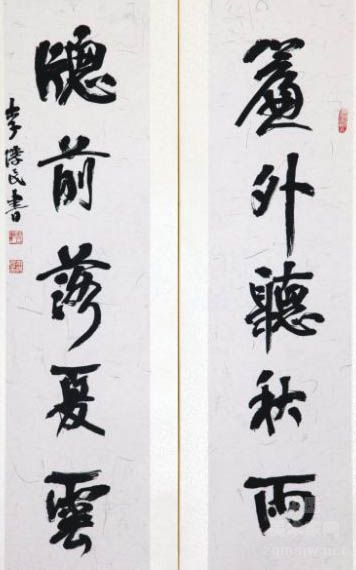 簾外聽秋雨
牕前落夏雲
李民書